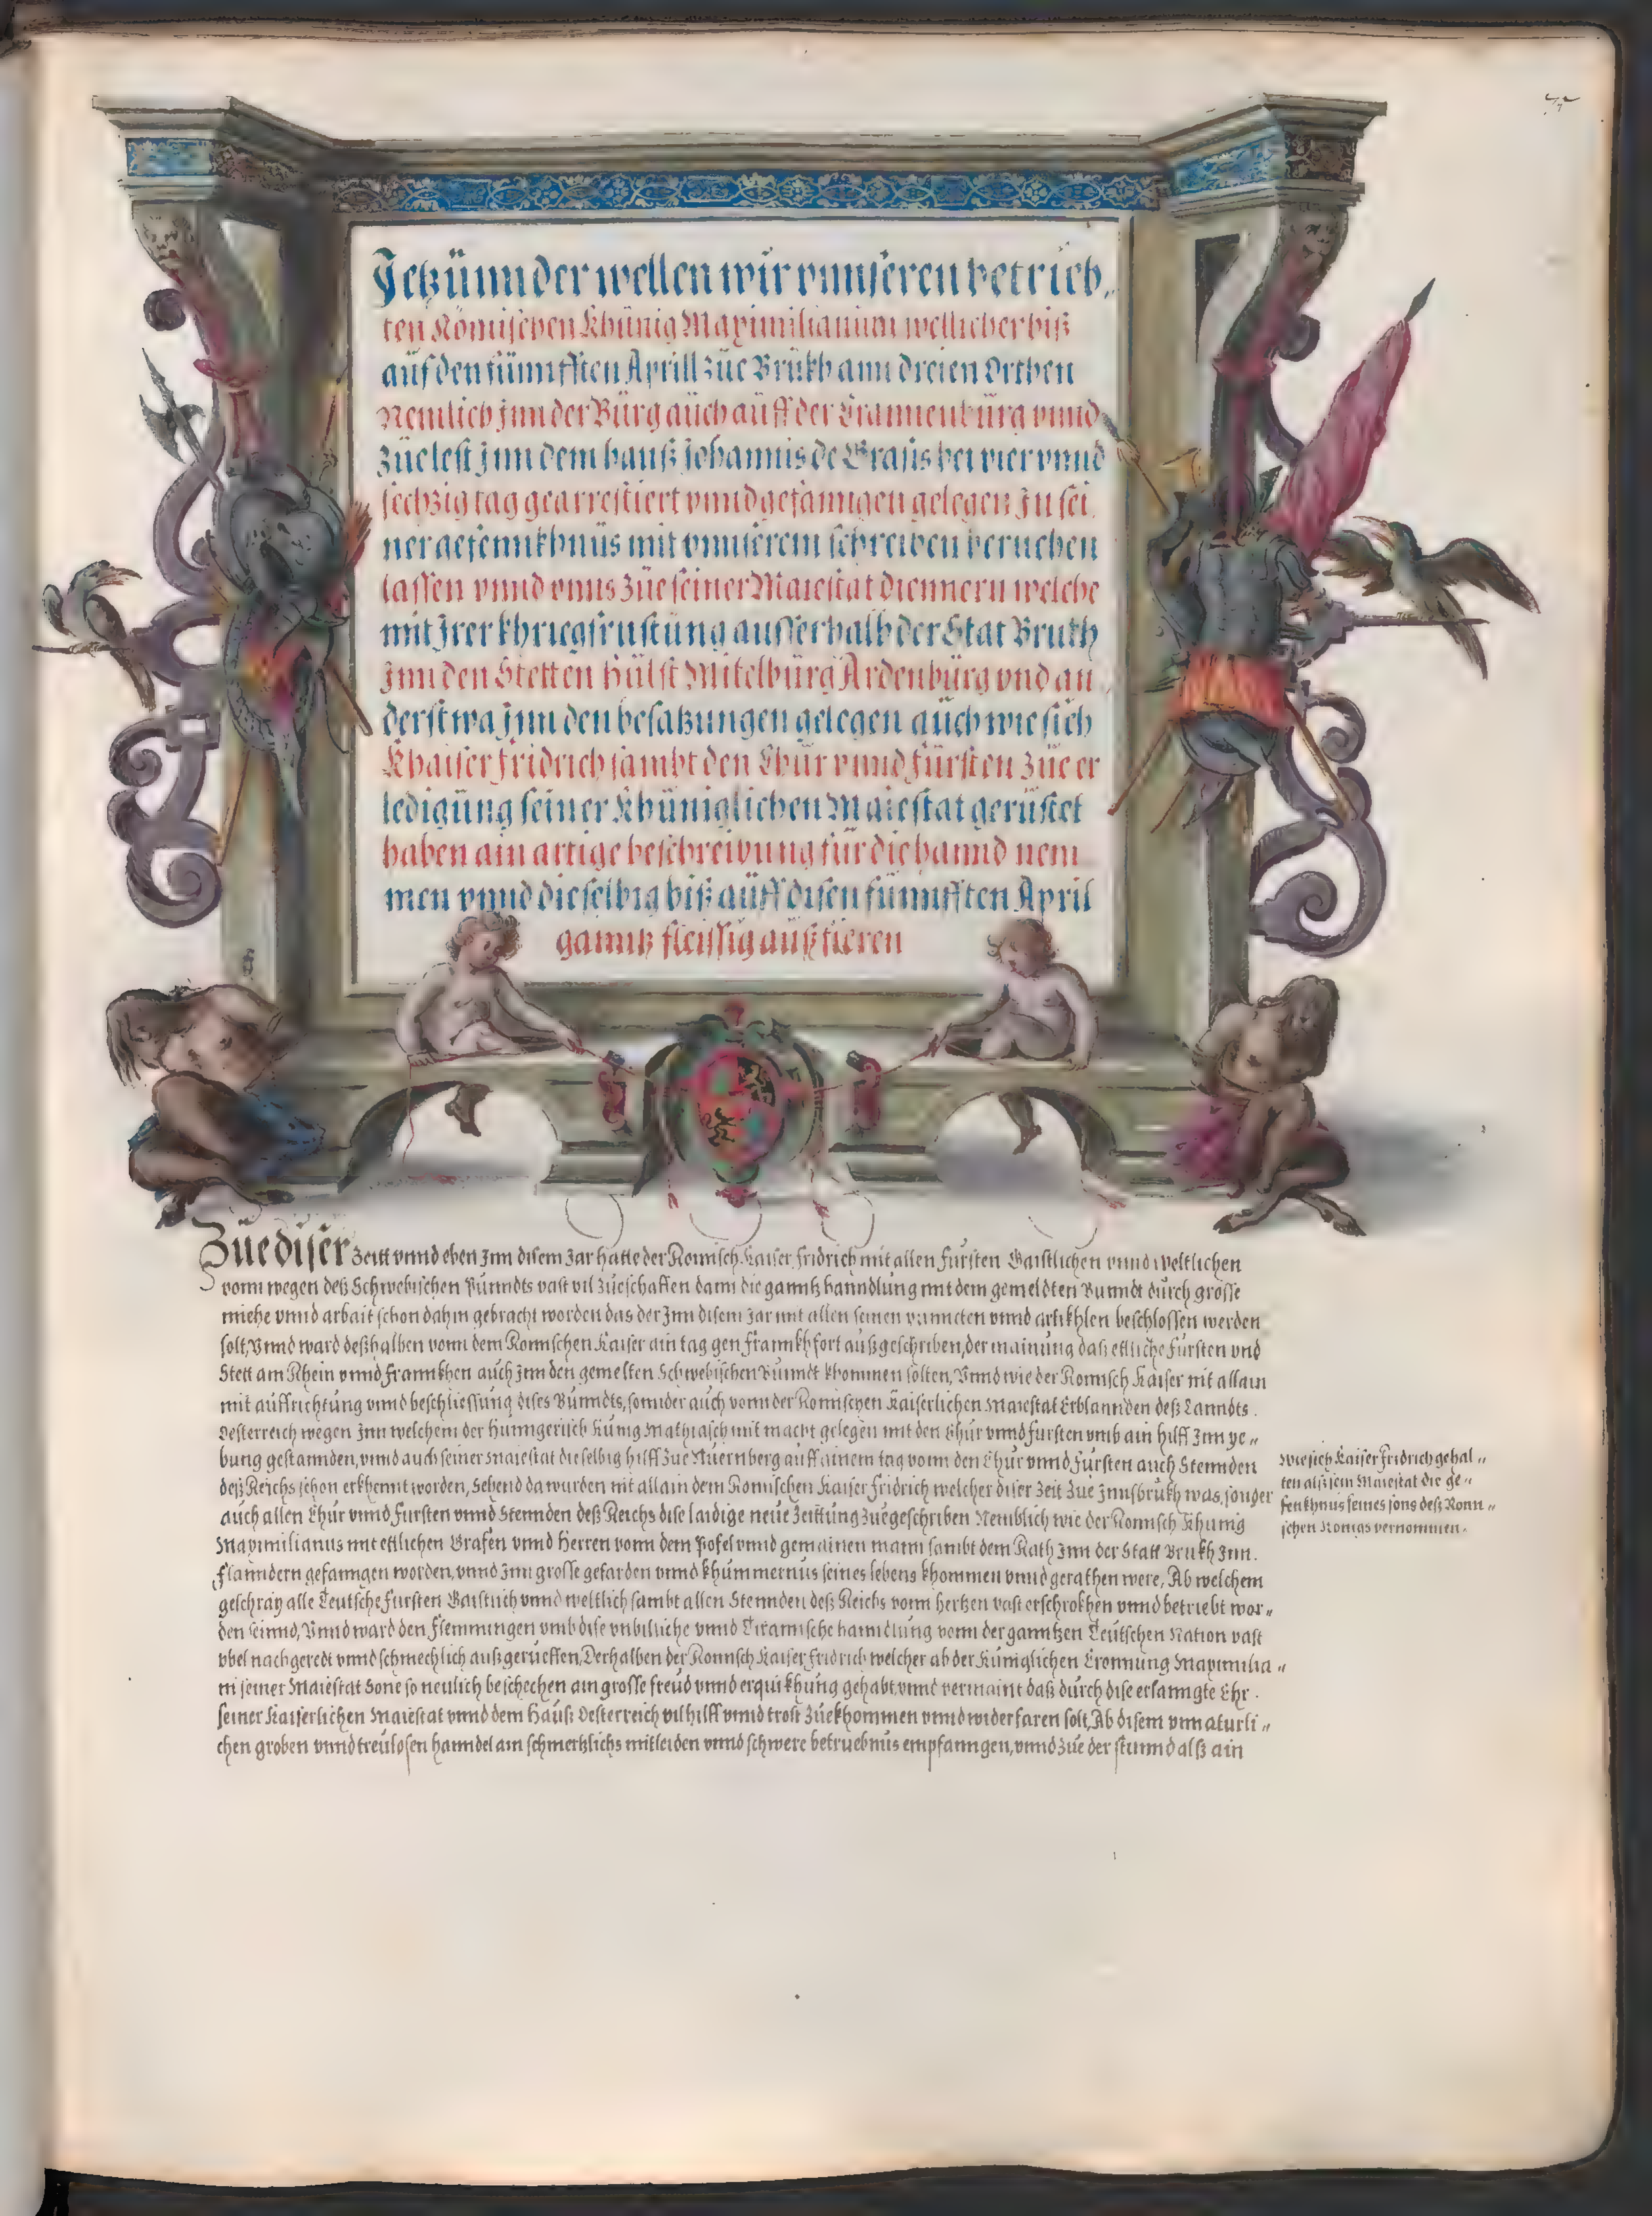 Jetzünnder wellen wir vnnseren betrieb,,
ten Römischen Khünig Maximilianum wellicher biß
auf den fünnfften Aprill züe Brükh ann dreien Orthen
Nemlich jnn der Bürg aüch aüff der Crannenbürg vnnd
züelest jnn dem hauß Johannis de Grasis bei vier vnnd
sechzig tag gearrestiert vnnd gefanngen gelegen Jn sei,
ner gefennkhnüs mit vnnserem schreiben beruehen
lassen vnnd vnns züe seiner Maiestat diennern welche
mit Jrer khriegsrustüng ausserhalb der Stat Brukh
Jnn den Stetten Hülst Mitelbürg Ardenbürg vnd an,
derstwa Jnn den besatzungen gelegen aüch wie sich
Khaiser Fridrich sambt den Chür vnnd Fürsten züe er
ledigüng seiner Khüniglichen Maiestat gerüstet
haben ain artige beschreibung für die hannd nem
men vnnd dieselbig biß aüff disen fünnfften April
ganntz fleissig aüßfieren
Züe diser Zeitt vnnd eben Jnn disem Jar hatte der Romisch Kaiser Fridrich mit allen Fursten Gaistlichen vnnd Weltlichen
vonn wegen deß Schwebischen Punndts vast vil züeschaffen dann die ganntz hanndlung mit dem gemeldten Bunndt dürch grosse
miehe vnnd arbait schon dahin gebracht worden das der Jnn disem Jar mit allen seinen puncten vnnd artikhlen beschlossen werden
solt, Vnnd ward deßhalben vonn dem Romischen Kaiser ain tag gen Frannkhfort außgeschriben, der mainung daß ettliche Fürsten vnd
Stett am Rhein vnnd Frannkhen auch Jnn den gemelten Schwebischen Bunndt khommen solten, Vnnd wie der Romisch Kaiser nit allain
mit aüffrichtüng vnnd beschliessüng dises Bünndts, sonnder auch vonn der Romischen Kaiserlichen Maiestat Erblannden deß Lanndts.
Oesterreich wegen Jnn welchem der Hunngerisch Künig Mathiasch mit macht gelegen mit den Chür vnnd fursten vmb ain hilff Jnn ye,,
bung gestannden, vnnd auch seiner Maiestat dieselbig hilff züe Nüernberg auff ainem tag vonn den Chür vnnd Fürsten auch Stennden
deß Reichs schon erkhennt worden, Sehend da wurden nit allain dem Romischen Kaiser Fridrich welcher diser Zeit züe Jnnsbrukh was, sonder
auch allen Chür vnnd Fursten vnnd Stennden deß Reichs dise laidige neüe Zeittüng züegeschriben Nemblich wie der Romisch Khunig
Maximilianus mit ettlichen Grafen vnnd Herren vonn dem Pofel vnnd gemainen mann sambt dem Rath Jnn der Statt Brukh Jnn.
Flanndern gefanngen worden, vnnd Jnn grosse gefarden vnnd khümmernus seines lebens khommen vnnd gerathen were, Ab welchem
geschray alle Teutsche fursten Gaistlich vnnd weltlich sambt allen Stennden deß Reichs vonn hertzen vast erschrokhen vnnd betriebt wor,,
den seinnd, Vnnd ward den Flemmingen vmb dise vnbilliche vnnd Tirannische hanndlüng vonn der ganntzen Teütschen Nation vast
vbel nachgeredt vnnd schmechlich außgerüeffen, Derhalben der Romisch Kaiser Fridrich welcher ab der Küniglichen Cronnung Maximilia,,
ni seiner Maiestat Sone so neulich beschechen ain grosse freüd vnnd erquikhüng gehabt, vnnd vermaint daß dürch dise erlanngte Ehr.
seiner Kaiserlichen Maiestat vnnd dem Haüß Oesterreich vil hilff vnnd trost züekhommen vnnd widerfaren solt, Ab disem vnnaturli,,
chen groben vnnd treülosen hanndel ain schmertzlichs mitleiden vnnd schwere betruebnüs empfanngen, vnnd züe der stünnd alß ain
Wie sich Kaiser Fridrich gehal,,
ten alß sein Maiestat die ge,,
fenkhnus seines sons deß Rom,,
ischen Konigs vernommen.